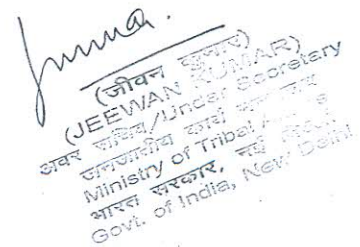 (जीवन कुमार)
(JEEWAN KUMAR)
अवर सचिव/Under Secretary
जनजातीय कार्य
Ministry of Tribal
भारत सरकार, नई
Govt. of India, New Delhi